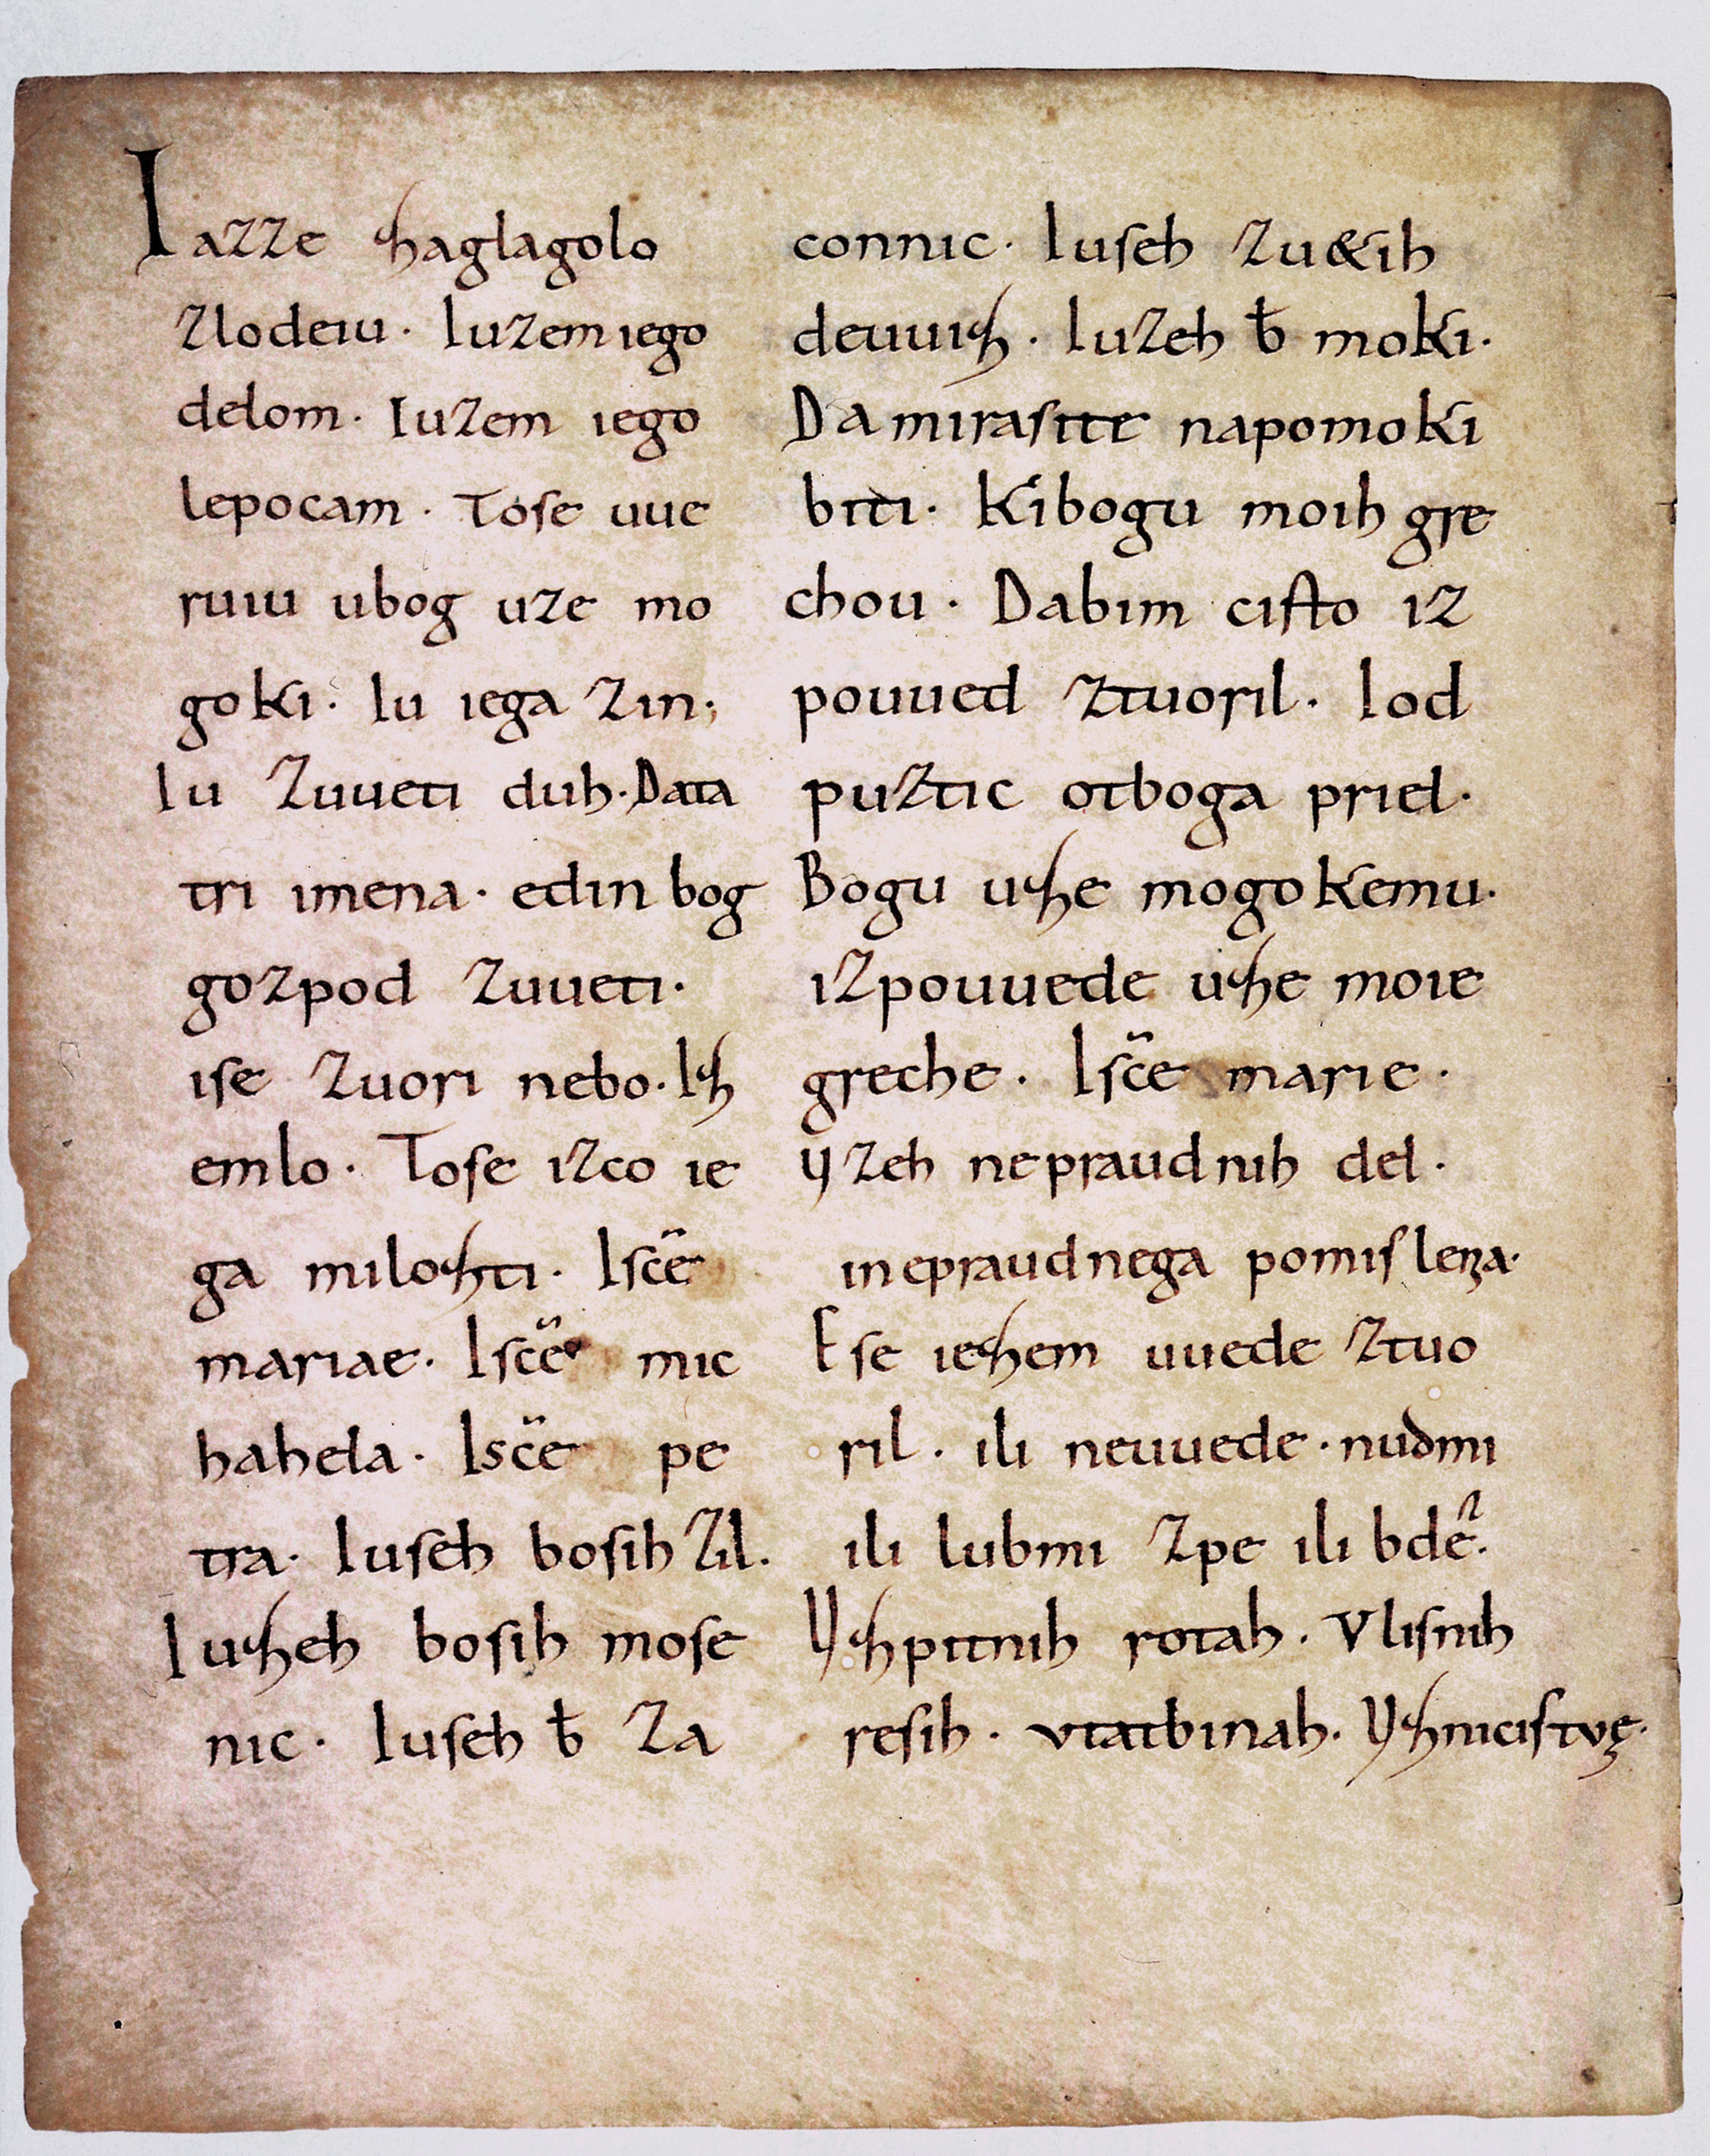 Iazze zhaglagolo
zlodeiu· Iuzem iego
delom· Iuzem iego
lepocam· Tose uue
ruiu ubog uze mo
goki· Iu iega zin;
Iu zuueti duh· Data
tri imena· edin bog
gozpod zuueti·
ise zuori nebo· Izh
emlo· Tose izco ie
ga milozhti· Isc̃e
mariae· Isc̃e mic
hahela· Isc̃e pe
tra· Iuseh bosih zil·
Iuzheh bosih mose
nic· Iuseh ƀ za
connic· Iuseh zu&ih
deuuizh· Iuzeh ƀ moki·
Da mirasite napomoki
biti· Kibogu moih gre
chou· Dabim cisto iz
pouued ztuoril· Iod
puztic otboga priel·
Bogu uzhe mogokemu·
izpouuede uzhe moie
greche· Isc̃e marie·
Vzeh nepraudnih del·
inepraudnega pomislenza·
Ese iezhem uuede ztuo
ril· ili neuuede· nudmi
ili lubmi zpe ili bde·
Vzhpitnih rotah· Vlisnih
resih· vtatbinah· Vzhnicistvę·